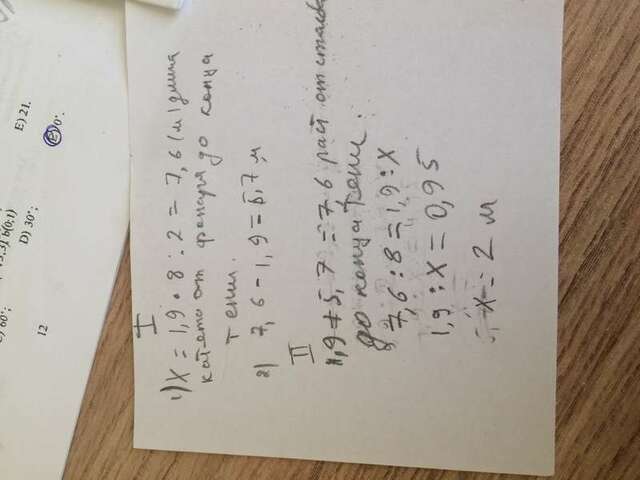 C) 60°;
b(0;1)
D) 30°;
E) 21.
12
E) 0°.
I
1) X = 1,9 • 8 : 2 = 7,6 (м) длина
катета от фонаря до конца
тени.
2) 7,6 - 1,9 = 5,7 м
II
1,9 + 5,7 = 7,6 раст от столба
до конца тени.
7,6 : 8 = 1,9 : X
1,9 : X = 0,95
X = 2 м